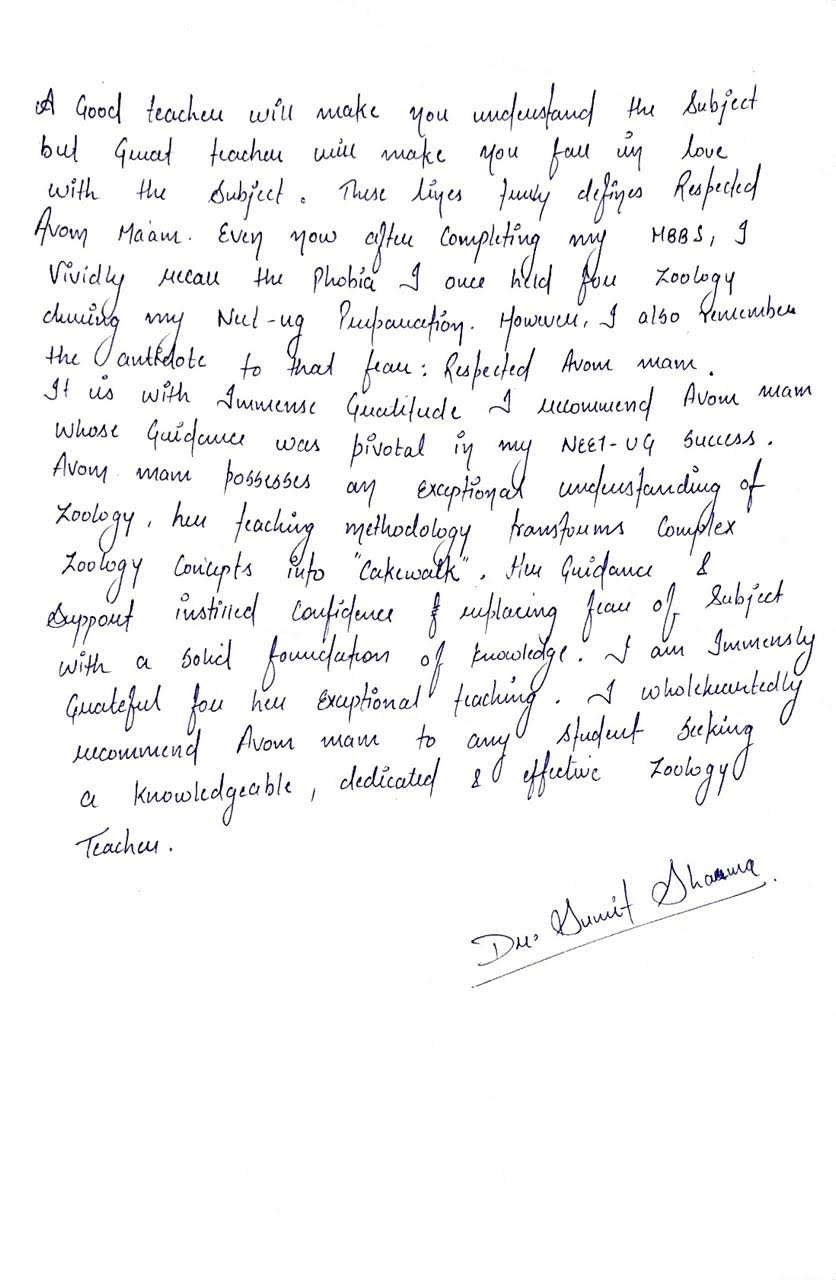 A Good teacher will make you understand the Subject
but Great teacher will make you fall in love
with the Subject. These lines truly defines Respected
Avom Ma'am. Even now after Completing my MBBS, I
Vividly recall the Phobia I once held for Zoology
during my Neet-ug Preparation. However, I also remember
the antidote to that fear: Respected Avom mam.
It is with Immense Gratitude I recommend Avom mam
whose Guidance was pivotal in my NEET-UG Success.
Avom mam possesses an exceptional understanding of
Zoology, her teaching methodology transforms Complex
Zoology Concepts into "Cakewalk". Her Guidance &
Support instilled Confidence & replacing fear of Subject
with a solid foundation of knowledge. I am Immensly
Grateful for her Exceptional teaching. I wholeheartedly
recommend Avom mam to any student Seeking
a knowledgeable, dedicated & effective Zoology
Teacher.
Dr. Sumit Sharma